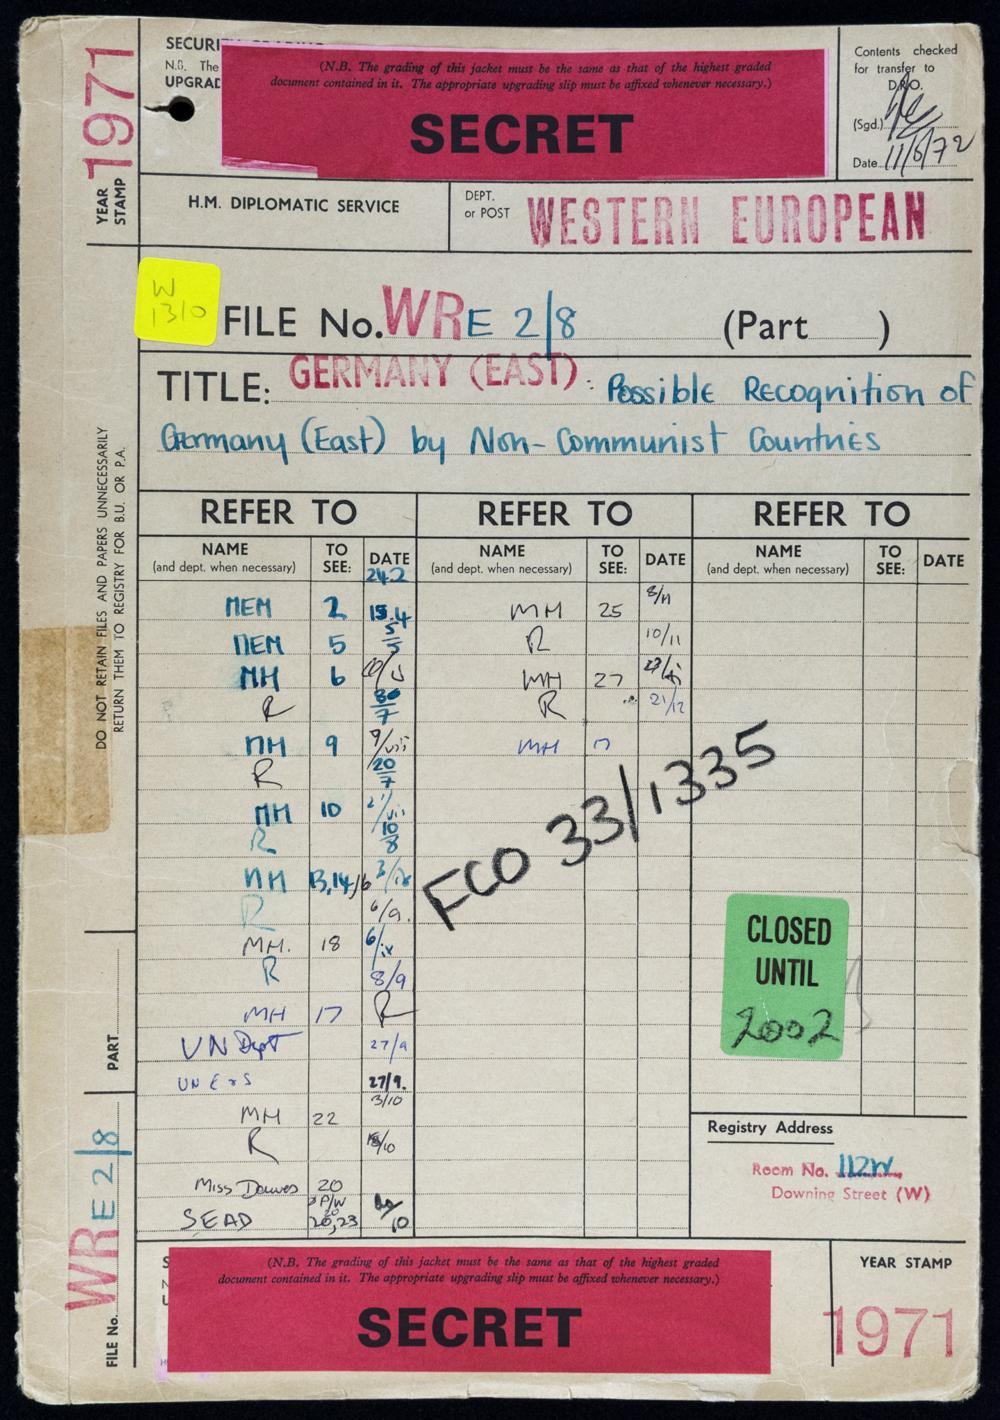 SECURI
N.B. The
UPGRAD
(N.B. The grading of this jacket must be the same as that of the highest graded
document contained in it. The appropriate upgrading slip must be affixed whenever necessary.)
SECRET
Contents checked
for transfer to
D.R.O.
(Sgd.)
Date 11/5/72
YEAR STAMP 1971
H.M. DIPLOMATIC SERVICE
DEPT. or POST WESTERN EUROPEAN
W
1310
FILE No. WRE 2/8 (Part )
TITLE: GERMANY (EAST): Possible Recognition of
Germany (East) by Non-Communist Countries
DO NOT RETAIN FILES AND PAPERS UNNECESSARILY
RETURN THEM TO REGISTRY FOR B.U. OR P.A.
REFER TO REFER TO REFER TO
NAME (and dept. when necessary) TO SEE: DATE
NAME (and dept. when necessary) TO SEE: DATE
NAME (and dept. when necessary) TO SEE: DATE
24.2
MEM 2 15.4
MEM 5 5/5
MH 6
R 30/7
MH 9 9/vii
R 20/7
MH 10 /vii
R 10/8
MH 13,14/6 3/ix
R 6/9.
MH. 18 6/ix
R 8/9
MH 17 R
UN Dept 27/9
UN E&S 27/9.
3/10
MH 22
R /10
Miss Dawes 20
SEAD 20,23 /10
MH 25 8/11
R 10/11
MH 27
R 21/12
MH 17
FCO 33/1335
CLOSED
UNTIL
2002
PART
FILE No. WRE 2/8
Registry Address
Room No. 112W
Downing Street (W)
(N.B. The grading of this jacket must be the same as that of the highest graded
document contained in it. The appropriate upgrading slip must be affixed whenever necessary.)
SECRET
YEAR STAMP
1971